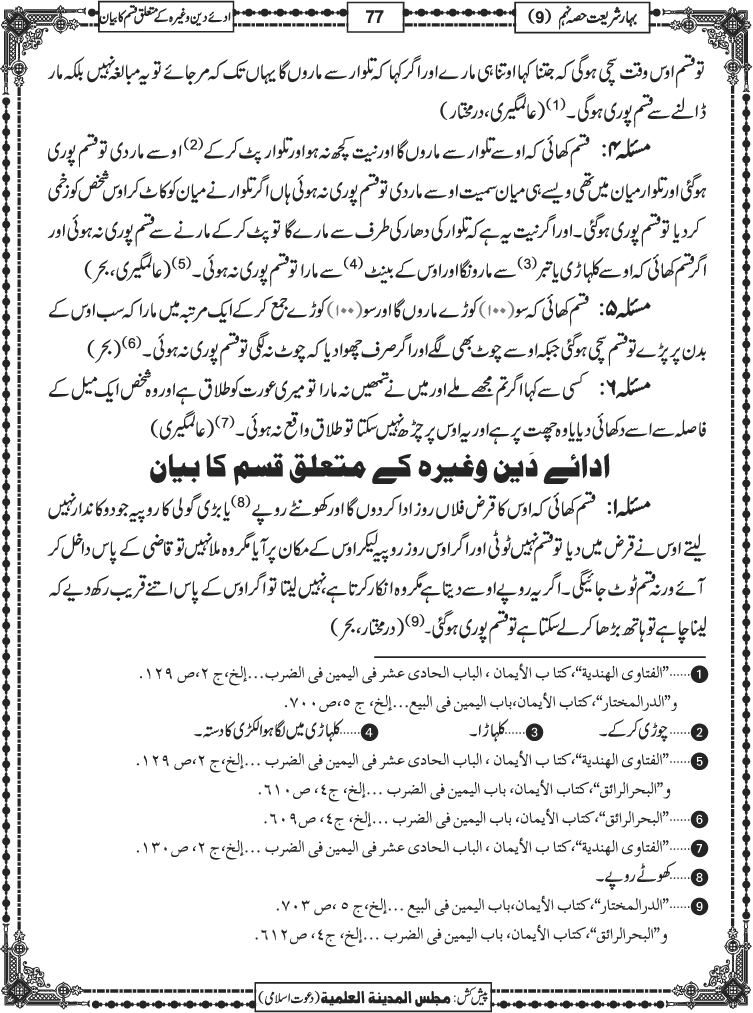 بہارِ شریعت حصہ نہم (9)
77
ادائے دین وغیرہ کے متعلق قسم کا بیان
تو قسم اوس وقت سچی ہوگی کہ جتنا کہا اوتنا ہی مارے اور اگر کہا کہ تلوار سے ماروں گا یہاں تک کہ مر جائے تو یہ مبالغہ نہیں بلکہ مار
ڈالنے سے قسم پوری ہوگی۔(1) (عالمگیری، درمختار)
مسئلہ ۴: قسم کھائی کہ اوسے تلوار سے ماروں گا اور نیت کچھ نہ ہو اور تلوار پٹ کرکے(2) اوسے ماردی تو قسم پوری
ہوگئی اور تلوار میان میں تھی ویسے ہی میان سمیت اوسے ماردی تو قسم پوری نہ ہوئی ہاں اگر تلوار نے میان کو کاٹ کر اوس شخص کو زخمی
کردیا تو قسم پوری ہوگئی۔ اور اگر نیت یہ ہے کہ تلوار کی دھار کی طرف سے مارے گا تو پٹ کرکے مارنے سے قسم پوری نہ ہوئی اور
اگر قسم کھائی کہ اوسے کلہاڑی یا تبر(3) سے مارونگا اور اوس کے بینٹ(4) سے مارا تو قسم پوری نہ ہوئی۔(5) (عالمگیری، بحر)
مسئلہ ۵: قسم کھائی کہ سو(۱۰۰) کوڑے ماروں گا اور سو(۱۰۰) کوڑے جمع کرکے ایک مرتبہ میں مارا کہ سب اوس کے
بدن پر پڑے تو قسم سچی ہوگئی جبکہ اوسے چوٹ بھی لگے اور اگر صرف چھوا دیا کہ چوٹ نہ لگی تو قسم پوری نہ ہوئی۔(6) (بحر)
مسئلہ ۶: کسی سے کہا اگر تم مجھے ملے اور میں نے تمھیں نہ مارا تو میری عورت کو طلاق ہے اور وہ شخص ایک میل کے
فاصلہ سے اسے دکھائی دیا یا وہ چھت پر ہے اور یہ اوس پر چڑھ نہیں سکتا تو طلاق واقع نہ ہوئی۔(7) (عالمگیری)
ادائے دَین وغیرہ کے متعلق قسم کا بیان
مسئلہ ۱: قسم کھائی کہ اوس کا قرض فلاں روز ادا کردوں گا اور کھونٹے روپے(8) یا بڑی گولی کا روپیہ جو دوکاندار نہیں
لیتے اوس نے قرض میں دیا تو قسم نہیں ٹوٹی اور اگر اوس روز روپیہ لیکر اوس کے مکان پر آیا مگر وہ ملا نہیں تو قاضی کے پاس داخل کر
آئے ورنہ قسم ٹوٹ جائیگی۔ اگر یہ روپے اوسے دیتا ہے مگر وہ انکار کرتا ہے، نہیں لیتا تو اگر اوس کے پاس اتنے قریب رکھ دیے کہ
لینا چاہے تو ہاتھ بڑھا کر لے سکتا ہے تو قسم پوری ہوگئی۔(9) (درمختار، بحر)
1......"الفتاوی الهندیة"، کتا ب الأیمان ، الباب الحادی عشر فی الیمین فی الضرب...إلخ،ج ۲،ص ۱۲۹.
و"الدرالمختار"، کتاب الأیمان،باب الیمین فی البیع...إلخ، ج ۵،ص ۷۰۰.
2......چوڑی کرکے۔ 3......کلہاڑا۔ 4......کلہاڑی میں لگا ہوا لکڑی کا دستہ۔
5......"الفتاوی الهندیة"،کتا ب الأیمان ، الباب الحادی عشر فی الیمین فی الضرب ...إلخ،ج ۲، ص ۱۲۹.
و"البحرالرائق"،کتاب الأیمان، باب الیمین فی الضرب ...إلخ، ج٤، ص ٦١٠.
6......"البحرالرائق"،کتاب الأیمان، باب الیمین فی الضرب ...إلخ، ج٤، ص ٦٠٩.
7......"الفتاوی الهندیة"،کتا ب الأیمان ، الباب الحادی عشر فی الیمین فی الضرب ...إلخ، ج ۲، ص ۱۳۰.
8......کھوٹے روپے۔
9......"الدرالمختار"، کتاب الأیمان،باب الیمین فی البیع ...إلخ، ج ۵ ،ص ۷۰۳.
و"البحرالرائق"،کتاب الأیمان، باب الیمین فی الضرب ...إلخ، ج٤، ص ٦١٢.
پیش کش: مجلس المدینة العلمیة (دعوت اسلامی)